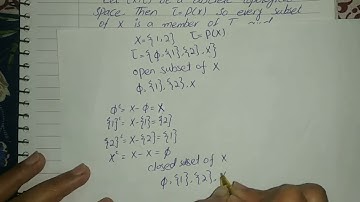 Let (X,τ) be a discrete topological
space. Then τ=P(X) so every subset
of X is a member of τ and
X={1,2} τ=P(X)
τ={ϕ,{1},{2},X}
open subset of X
ϕ,{1},{2},X
ϕᶜ=X-ϕ=X
{1}ᶜ=X-{1}={2}
{2}ᶜ=X-{2}={1}
Xᶜ=X-X=ϕ
closed subset of X
ϕ,{1},{2},